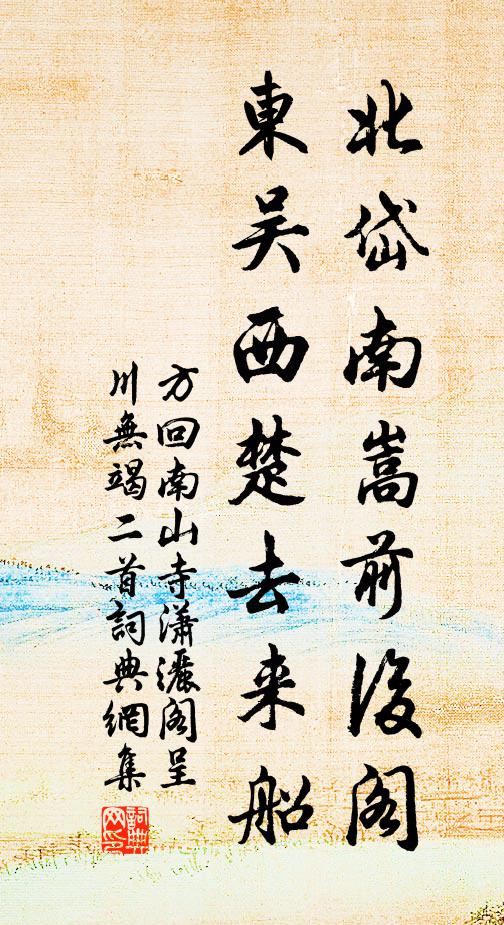 北岱南嵩前後阁
東吴西楚去来船
方回南山寺瀟灑阁呈
川無竭二首詞典網集
詞典
网